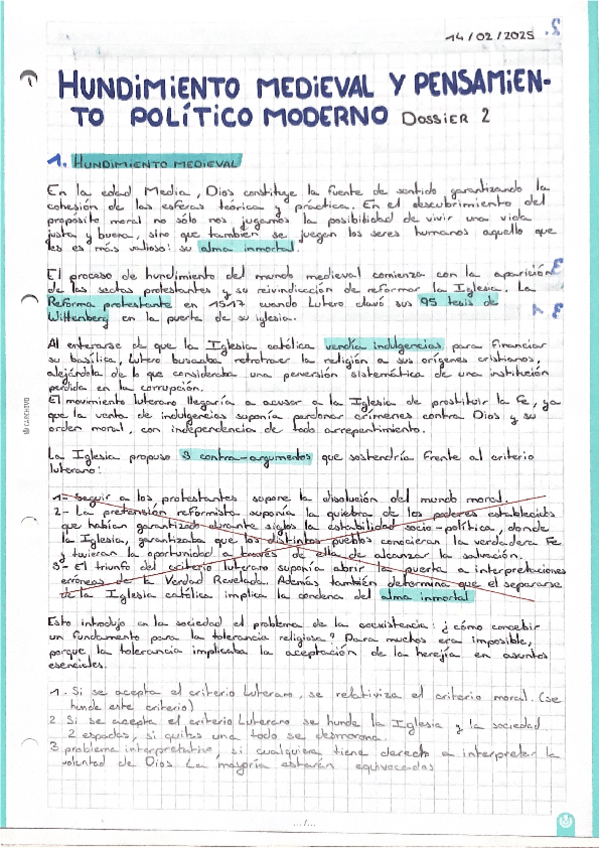 14/02/2025
2.
HUNDIMIENTO MEDIEVAL Y PENSAMIEN-
TO POLÍTICO MODERNO DOSSIER 2
1. HUNDIMIENTO MEDIEVAL
En la edad Media, Dios constituye la fuente de sentido garantizando la
cohesión de las esferas teórica y práctica. En el descubrimiento del
propósito moral no sólo nos jugamos la posibilidad de vivir una vida
justa y buena, sino que también se juegan los seres humanos aquello que
les es más valioso: su alma inmortal.
El proceso de hundimiento del mundo medieval comienza con la aparición
de las sectas protestantes y su reivindicación de reformar la Iglesia. La
Reforma protestante en 1517 cuando Lutero clavó sus 95 tesis de
Wittenberg en la puerta de su iglesia.
Al enterarse de que la Iglesia católica vendía indulgencias para financiar
su basílica, Lutero buscaba retrotraer la religión a sus orígenes cristianos,
alejándola de lo que consideraba una perversión sistemática de una institución
perdida en la corrupción.
El movimiento luterano llegaría a acusar a la Iglesia de prostituir la Fe, ya
que la venta de indulgencias suponía perdonar crímenes contra Dios y su
orden moral, con independencia de todo arrepentimiento.
La Iglesia propuso 3 contra-argumentos que sostendría frente al criterio
luterano:
1- Seguir a los protestantes supone la disolución del mundo moral.
2- La pretensión reformista suponía la quiebra de los poderes establecidos
que habían garantizado durante siglos la estabilidad socio-política, donde
la Iglesia, garantizaba que los distintos pueblos conocieran la verdadera Fe
y tuvieran la oportunidad a través de ella de alcanzar la salvación.
3- El triunfo del criterio luterano suponía abrir la puerta a interpretaciones
erróneas de la Verdad Revelada. Además también determina que el separarse
de la Iglesia católica implica la condena del alma inmortal
Esto introdujo en la sociedad el problema de la coexistencia: ¿cómo concebir
un fundamento para la tolerancia religiosa? Para muchos era imposible,
porque la tolerancia implicaba la aceptación de la herejía en asuntos
esenciales.
1. Si se acepta el criterio Luterano, se relativiza el criterio moral. (se
hunde este criterio)
2 Si se acepta el criterio Luterano se hunde la Iglesia y la sociedad
2 espadas, si quitas una todo se desmorona.
3 problema interpretativo, si cualquiera tiene derecho a interpretar la
voluntad de Dios la mayoría estarán equivocados
.../...